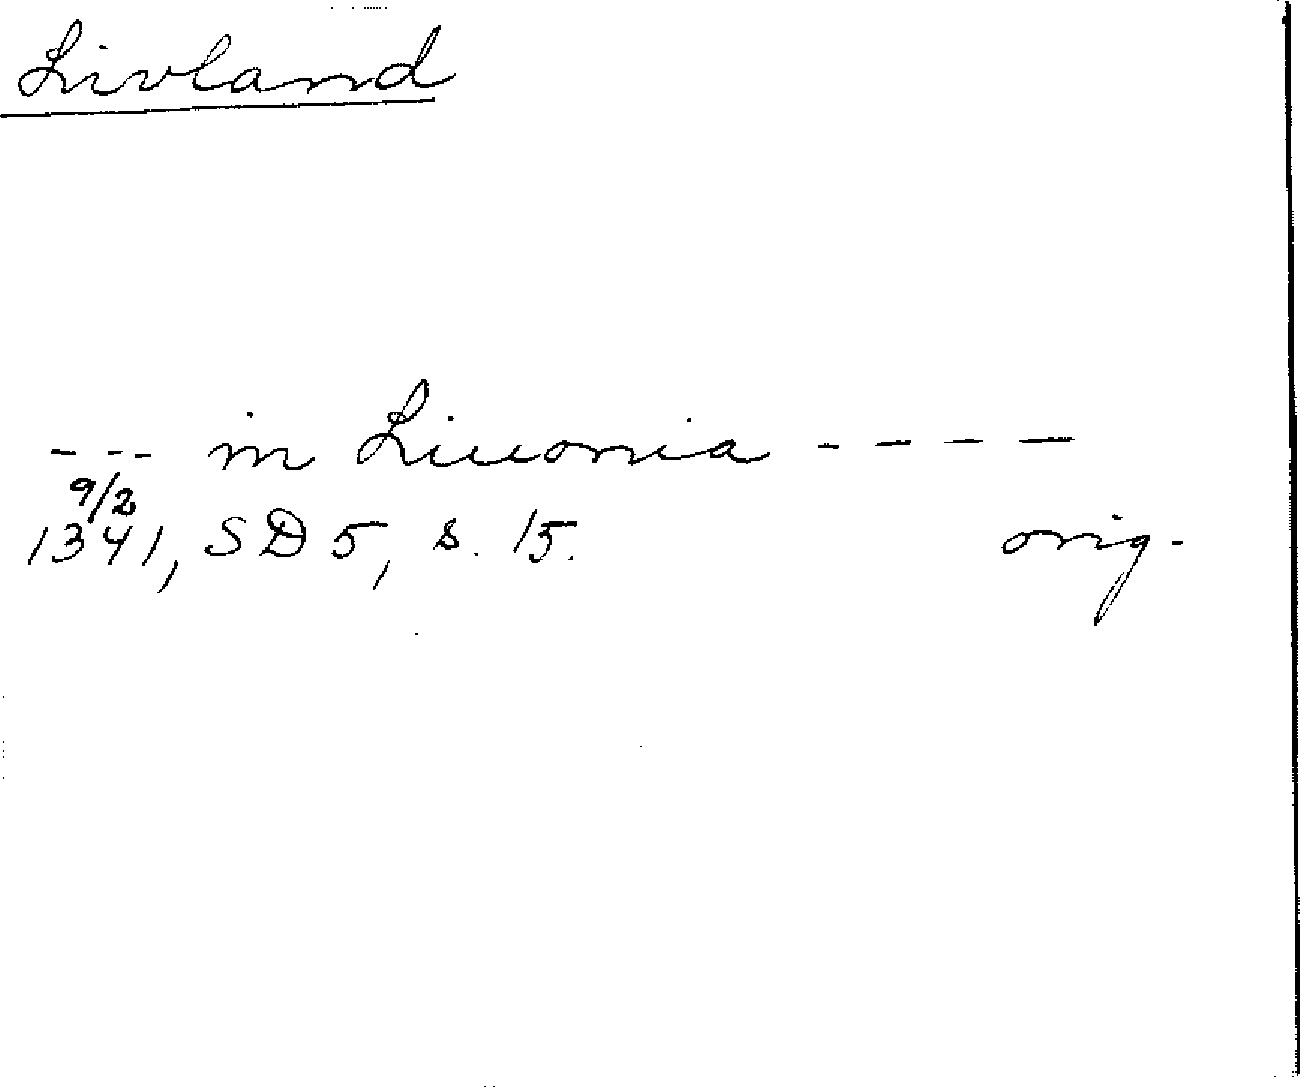 Livland
--- in Liuonia ----
9/2
1341, SD 5, s. 15. orig.